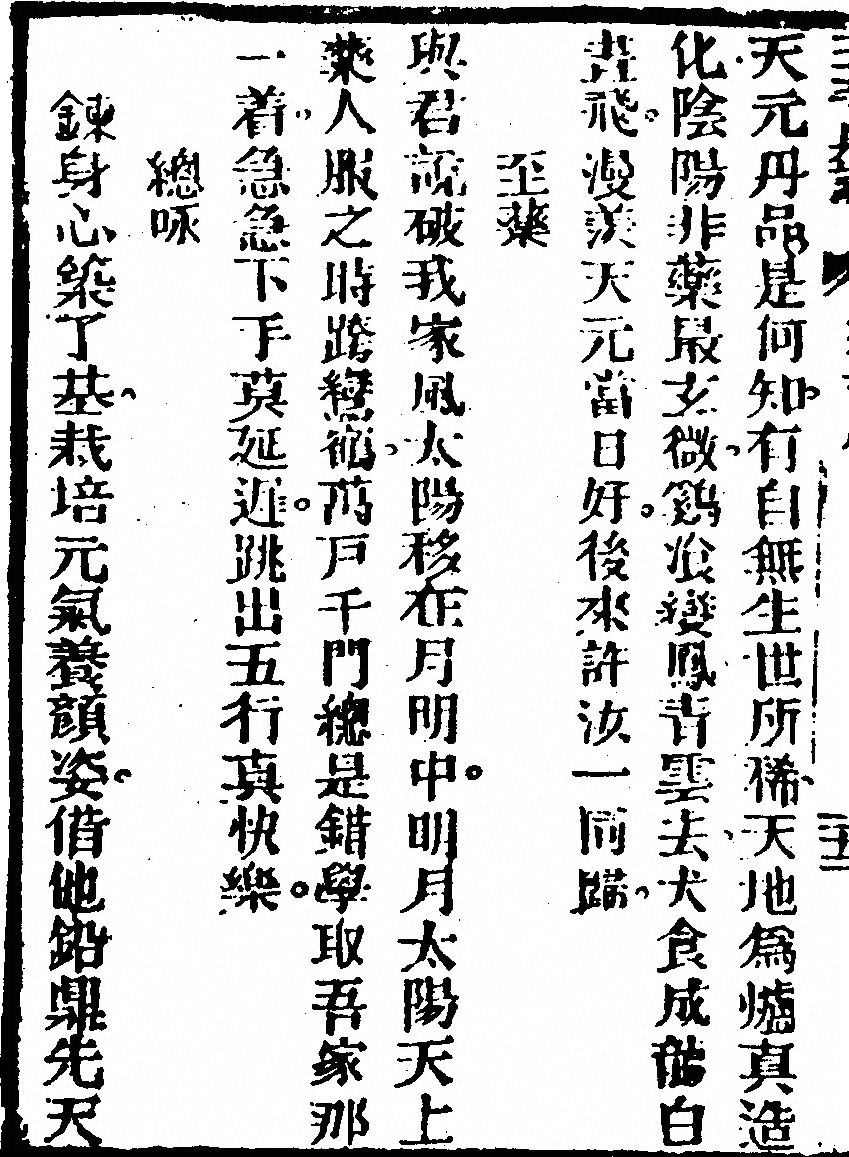 天元丹品是何知有自無生世所稀天地為爐真造
化陰陽非藥最玄微鷄飡變鳳青雲去犬食成龍白
晝飛漫羨天元當日好後來許汝一同歸
至藥
與君説破我家風太陽移在月明中明月太陽天上
藥人服之時跨鸞鶴萬戸千門總是錯學取吾家那
一着急急下手莫延遲跳出五行真快樂
總咏
鍊身心築了基栽培元氣養顔姿借他鉛鼎先天